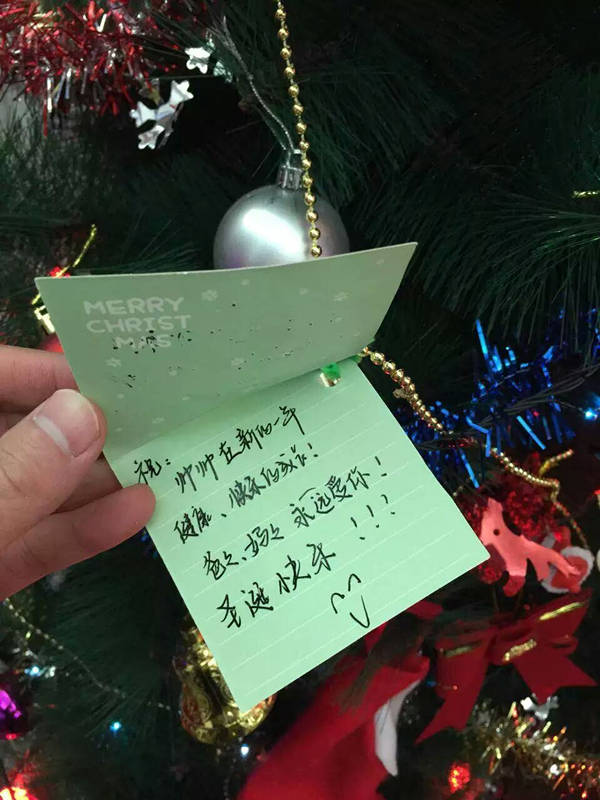 MERRY
CHRIST
MAS
祝：
帅帅在新的一年
健康、快乐的成长！
爸爸、妈妈 永远爱你！
圣诞快乐！！！